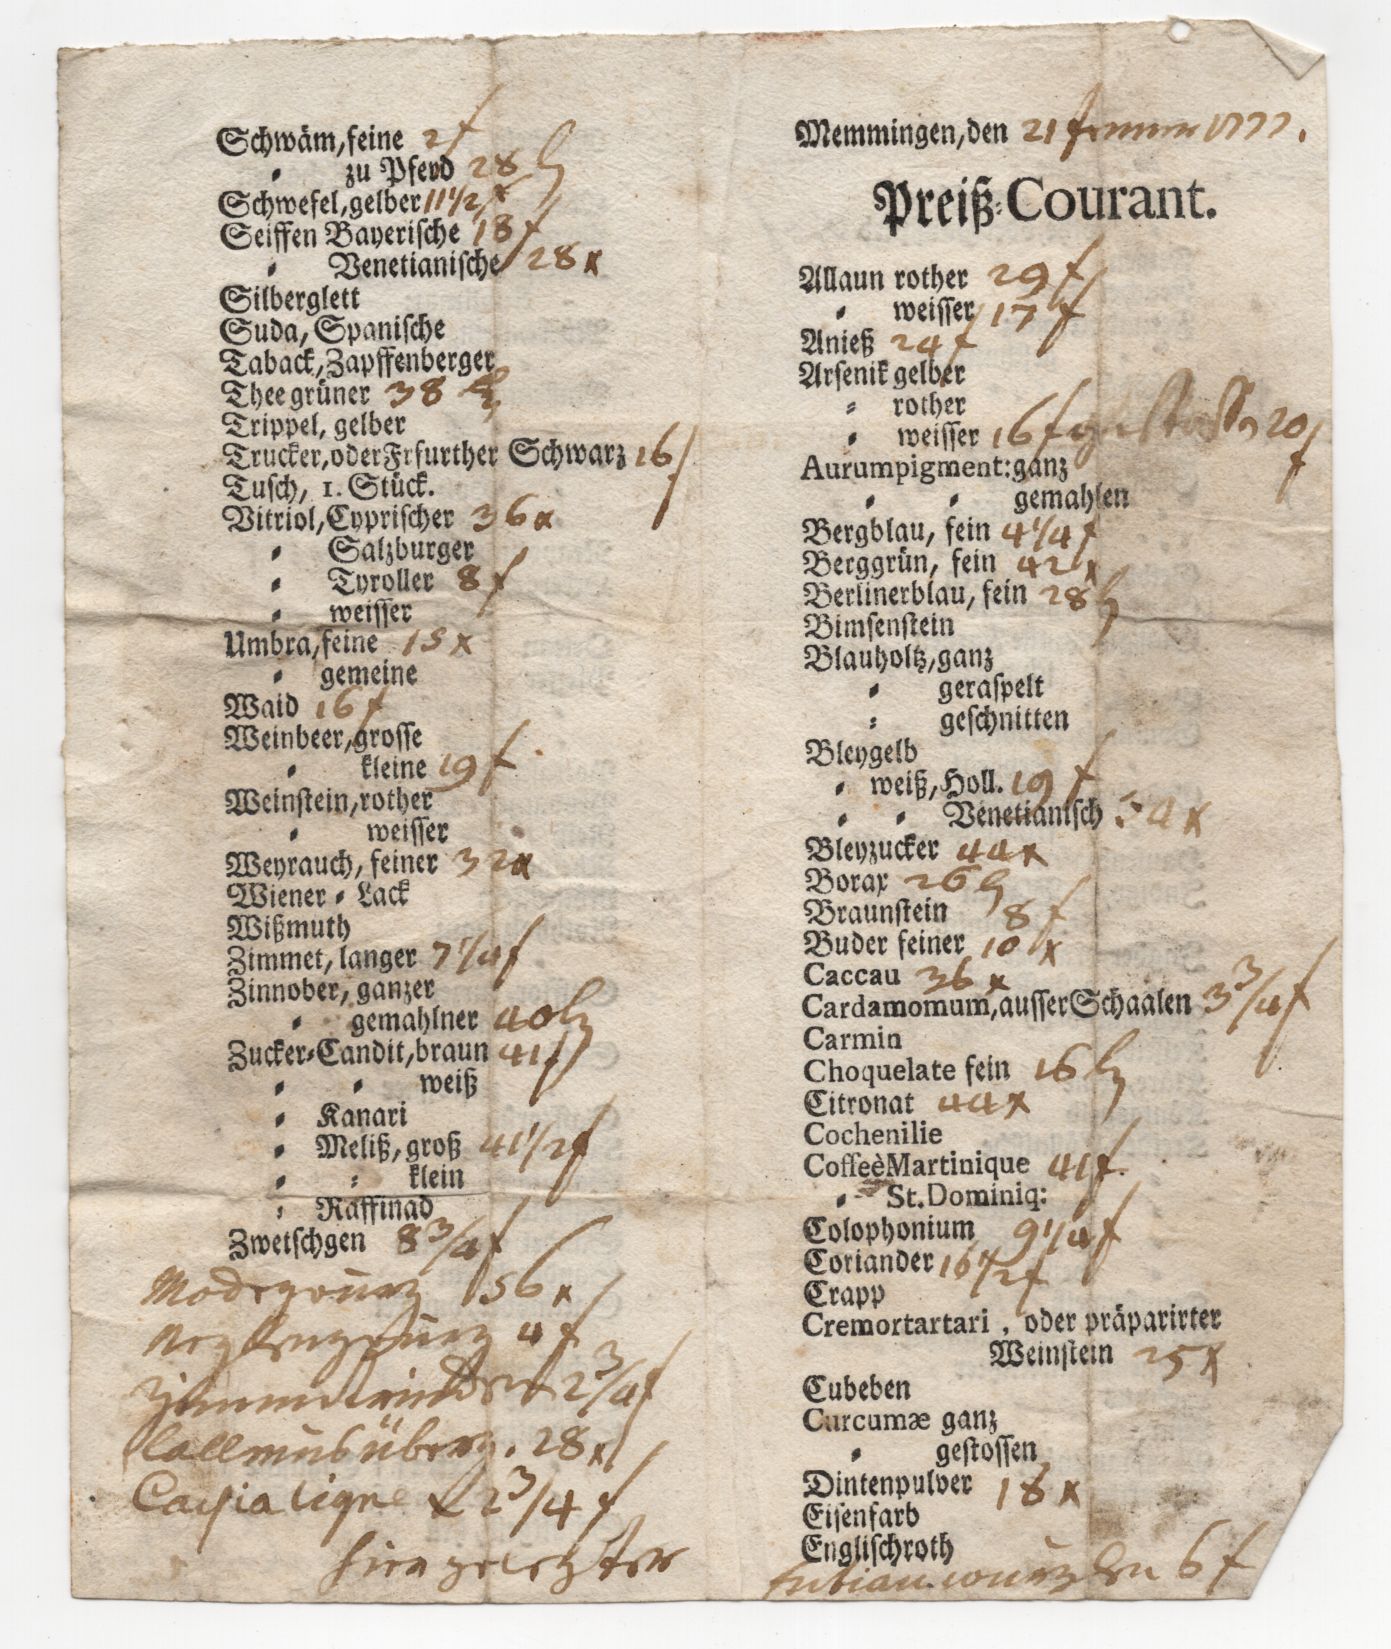 Schwäm, feine 2 f
zu Pferd 28
Schwefel, gelber 11 1/2 x
Seiffen Bayerische 18 f
Venetianische 28 x
Silberglett
Suda, Spanische
Taback, Zapffenberger
Thee grüner 38
Trippel, gelber
Trucker, oder Frfurther Schwarz 16 f
Tusch, 1. Stück.
Vitriol, Cyprischer 36 x
Salzburger
Tyroller 8 f
weisser
Umbra, feine 15 x
gemeine
Waid 16 f
Weinbeer, grosse
kleine 19 f
Weinstein, rother
weisser
Weyrauch, feiner 32 x
Wiener-Lack
Wißmuth
Zimmet, langer 7 1/4 f
Zinnober, ganzer
gemahlner 40
Zucker-Candit, braun 41 f
weiß
Kanari
Meliß, groß 41 1/2 f
klein
Raffinad
Zwetschgen 8 3/4 f
56 x
4 f
2 3/4 f
28 x
Cassia 2 3/4 f
Memmingen, den 21 1777.
Preiß-Courant.
Allaun rother 29 f
weisser 17 f
Anieß 24 f
Arsenik gelber
rother
weisser 16 f gestossen 20 f
Aurumpigment: ganz
gemahlen
Bergblau, fein 4 1/4 f
Berggrün, fein 42 x
Berlinerblau, fein 28
Bimsenstein
Blauholtz, ganz
geraspelt
geschnitten
Bleygelb
weiß, Holl. 19 f
Venetianisch x
Bleyzucker 44 x
Borax 26
Braunstein 8 f
Buder feiner 10 x
Caccau 36 x
Cardamomum, ausser Schaalen 3 3/4 f
Carmin
Choquelate fein 16
Citronat 44 x
Cochenilie
Coffeè Martinique 41 f.
St. Dominiq:
Colophonium 9 1/4 f
Coriander 16 1/2 f
Crapp
Cremortartari, oder präparirter
Weinstein 25 x
Cubeben
Curcumæ ganz
gestossen
Dintenpulver 18 x
Eisenfarb
Englischroth
6 f